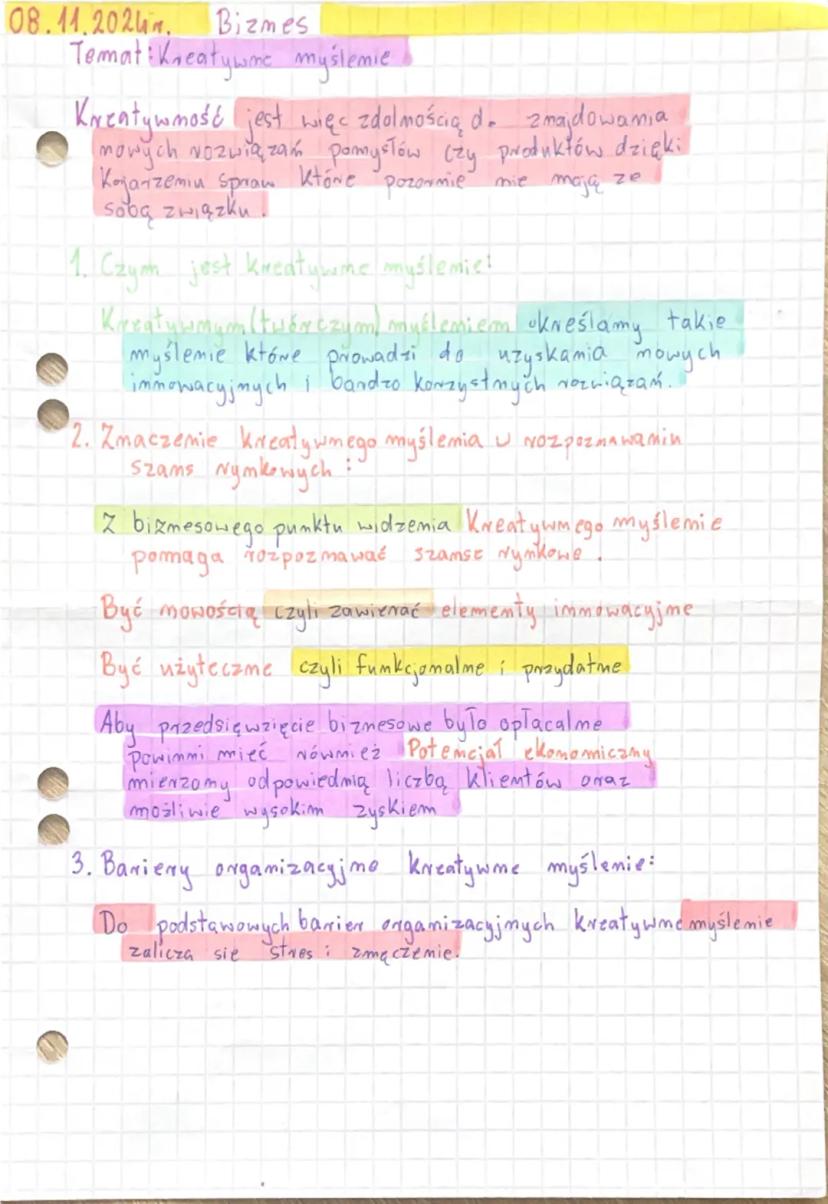 08.11.2024r. Biznes
Temat: Kreatywne myślenie
Kreatywność jest więc zdolnością do znajdowania
nowych rozwiązań pomysłów czy produktów dzięki
Kojarzeniu spraw które pozornie nie mają ze
sobą związku.
1. Czym jest kreatywne myślenie:
Kreatywnym (twórczym) myśleniem określamy takie
myślenie które prowadzi do uzyskania nowych
innowacyjnych i bardzo korzystnych rozwiązań.
2. Znaczenie kreatywnego myślenia w rozpoznawaniu
szans rynkowych:
Z biznesowego punktu widzenia Kreatywnego myślenie
pomaga rozpoznawać szanse rynkowe.
Być nowością czyli zawierać elementy innowacyjne
Być użyteczne czyli funkcjonalne i przydatne
Aby przedsięwzięcie biznesowe było opłacalne
powinni mieć również Potencjał ekonomiczny
mierzony odpowiednią liczbą klientów oraz
możliwie wysokim zyskiem
3. Bariery organizacyjno kreatywne myślenie:
Do podstawowych barier organizacyjnych kreatywne myślenie
zalicza się stres i zmęczenie.